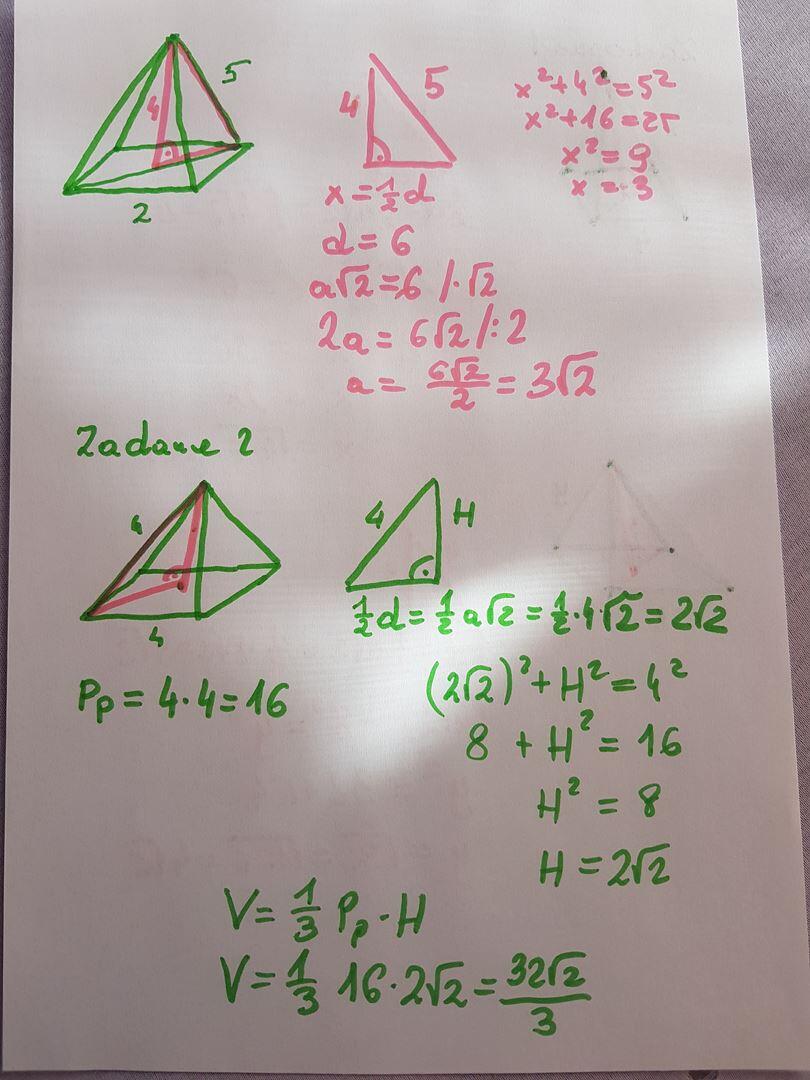 5
4
2
4
5
x²+4²=5²
x²+16=25
x²=9
x=3
x=½d
d=6
a√2=6 /·√2
2a=6√2 /:2
a=6√2/2=3√2
Zadanie 2
4
4
4
H
½d=½a√2=½·4√2=2√2
Pp=4·4=16
(2√2)²+H²=4²
8+H²=16
H²=8
H=2√2
V=⅓Pp·H
V=⅓16·2√2=32√2/3